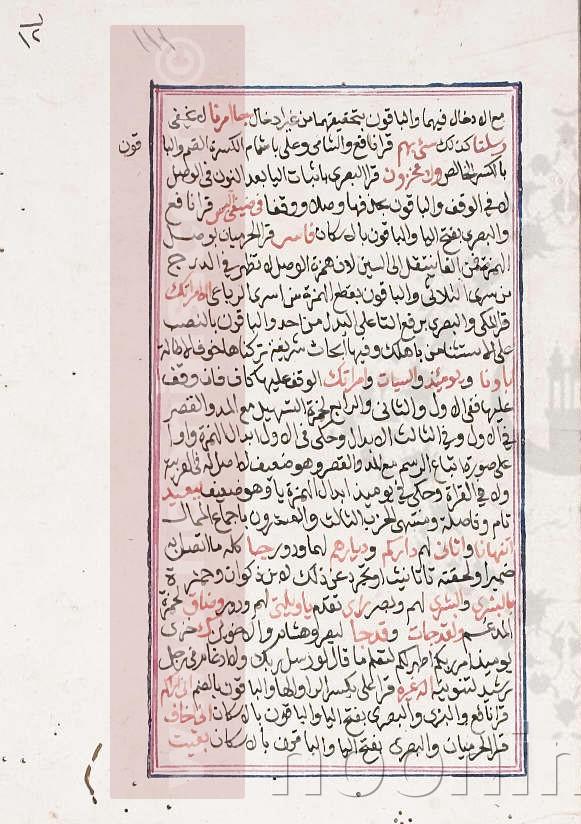 ١٢
١١١
مع الادخال فيهما والباقون بتحقيقهما من غير ادخال جا امرنا لا يخفى
رسلنا كذلك سئ بهم قرا نافع والشامى وعلى باشمام الكسرة الضم والبا
قون
بالكسر الخالص ولا تخزون قرا البصرى باثبات اليا بعد النون فى الوصل
لا فى الوقف والباقون بحذفها وصلا ووقفا فى ضيفى اليس قرا نافع
والبصرى بفتح اليا والباقون بالاسكان فاسر قرا الحرميان بوصل
الهمزة فمن الفا ينتقل الى السين لان همزة الوصل لا تظهر فى الدرج
من سرى الثلاثى والباقون بقطع الهمزة من اسرى الرباعى الا امراتك
قرا المكى والبصرى برفع التا على البدل من احد والباقون بالنصب
على الاستثنا من باهلك وفيها ابحاث شريفة تركناها خوف الاطالة
و يومئذ والسيات وامراتك الوقف عليها كاف فان وقف
عليها ففى الاول والثانى والرابع لحمزة التسهيل مع المد والقصر
فى الاول وفى الثالث الابدال وحكى فى الاول ابدال الهمزة واوا
على صورة اتباع الرسم مع المد والقصر وهو ضعيف لا اصل له فى العربية
ولا فى القراة وحكى فى يومئذ ابدال الهمزة يا وهو ضعيف ببعيد
تام وفاصلة ومنتهى الحزب الثالث والعشرون باجماع الممال
اتنهانا واتانى لهم داركم وديارهم لهما ودورى جا كلما اتصل به
ضمير او لحقته تا تانيث او تجرد عن ذلك لابن ذكوان وحمزة
بالبشرى والبشرى لهم وبصرى راى تقدم ياويلتى لهم ودورى وضاق لحمزة
المدغم ولقد جات وقد جا لبصرى وهشام والاخوين ك خزى
يومئذ امر ربك اطهر لكم لتعلم ما قال لو رسل ربك ولا ادغام فى رجل
رشيد لتنوينه اله غيره قرا على بكسر الرا والها والباقون بالضم انى اراكم
قرا نافع والبزى والبصرى بفتح اليا والباقون بالاسكان انى اخاف
قرا الحرميان والبصرى بفتح اليا والباقون بالاسكان بقيت
noorlin